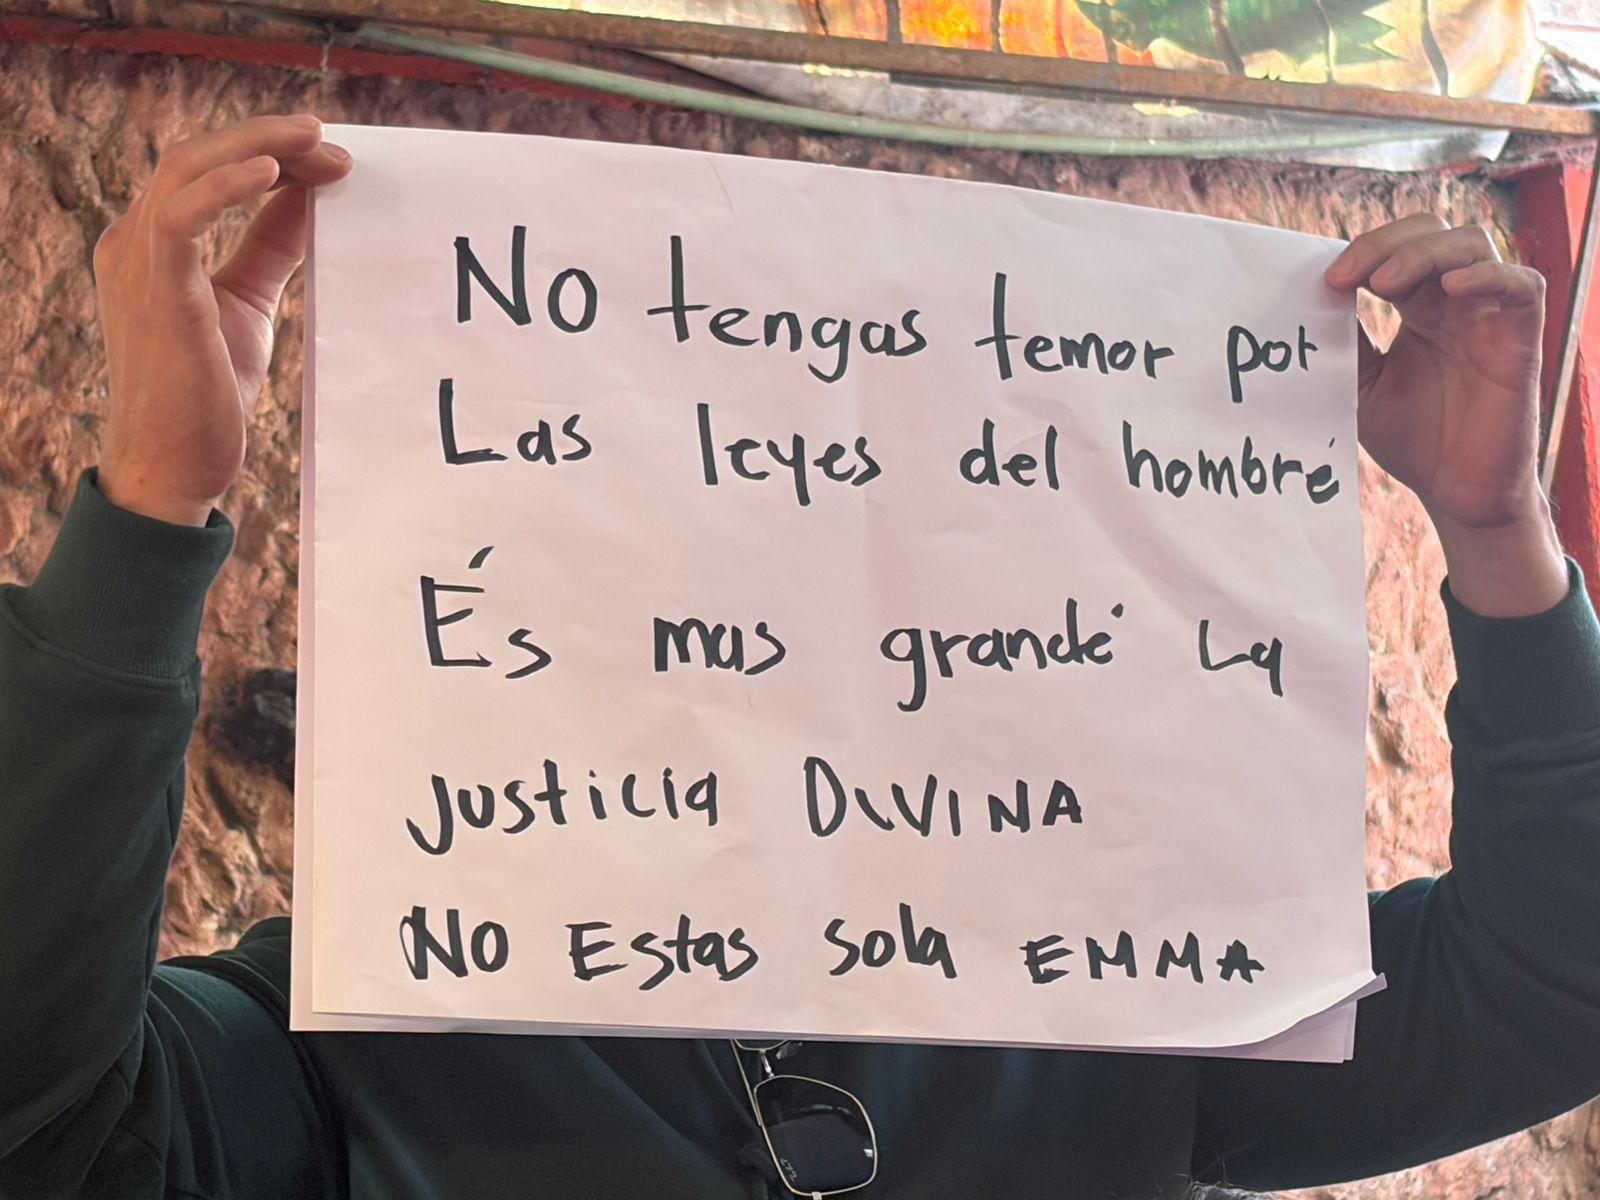 No tengas temor por
Las leyes del hombré
És mas grandé La
Justicia DIVINA
No Estas sola EMMA